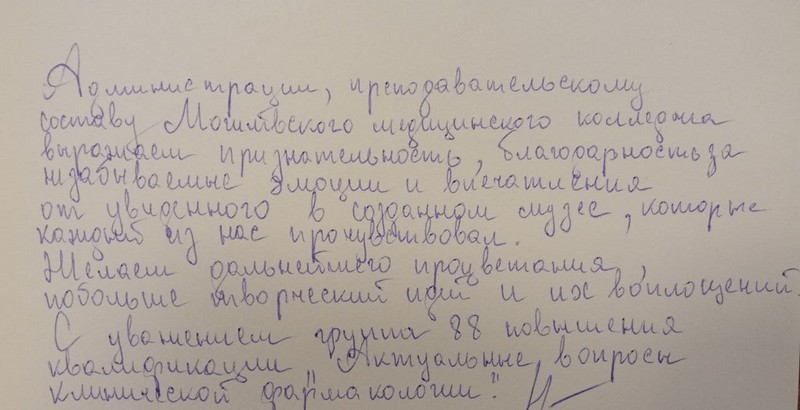 Администрации, преподавательскому
составу Могилёвского медицинского колледжа
выражаем признательность, благодарность за
незабываемые эмоции и впечатления
от увиденного в созданном музее, которые
каждый из нас прочувствовал.
Желаем дальнейшего процветания,
побольше творческий идей и их воплощений.
С уважением группа 88 повышения
квалификации „Актуальные вопросы
клинической фармакологии".